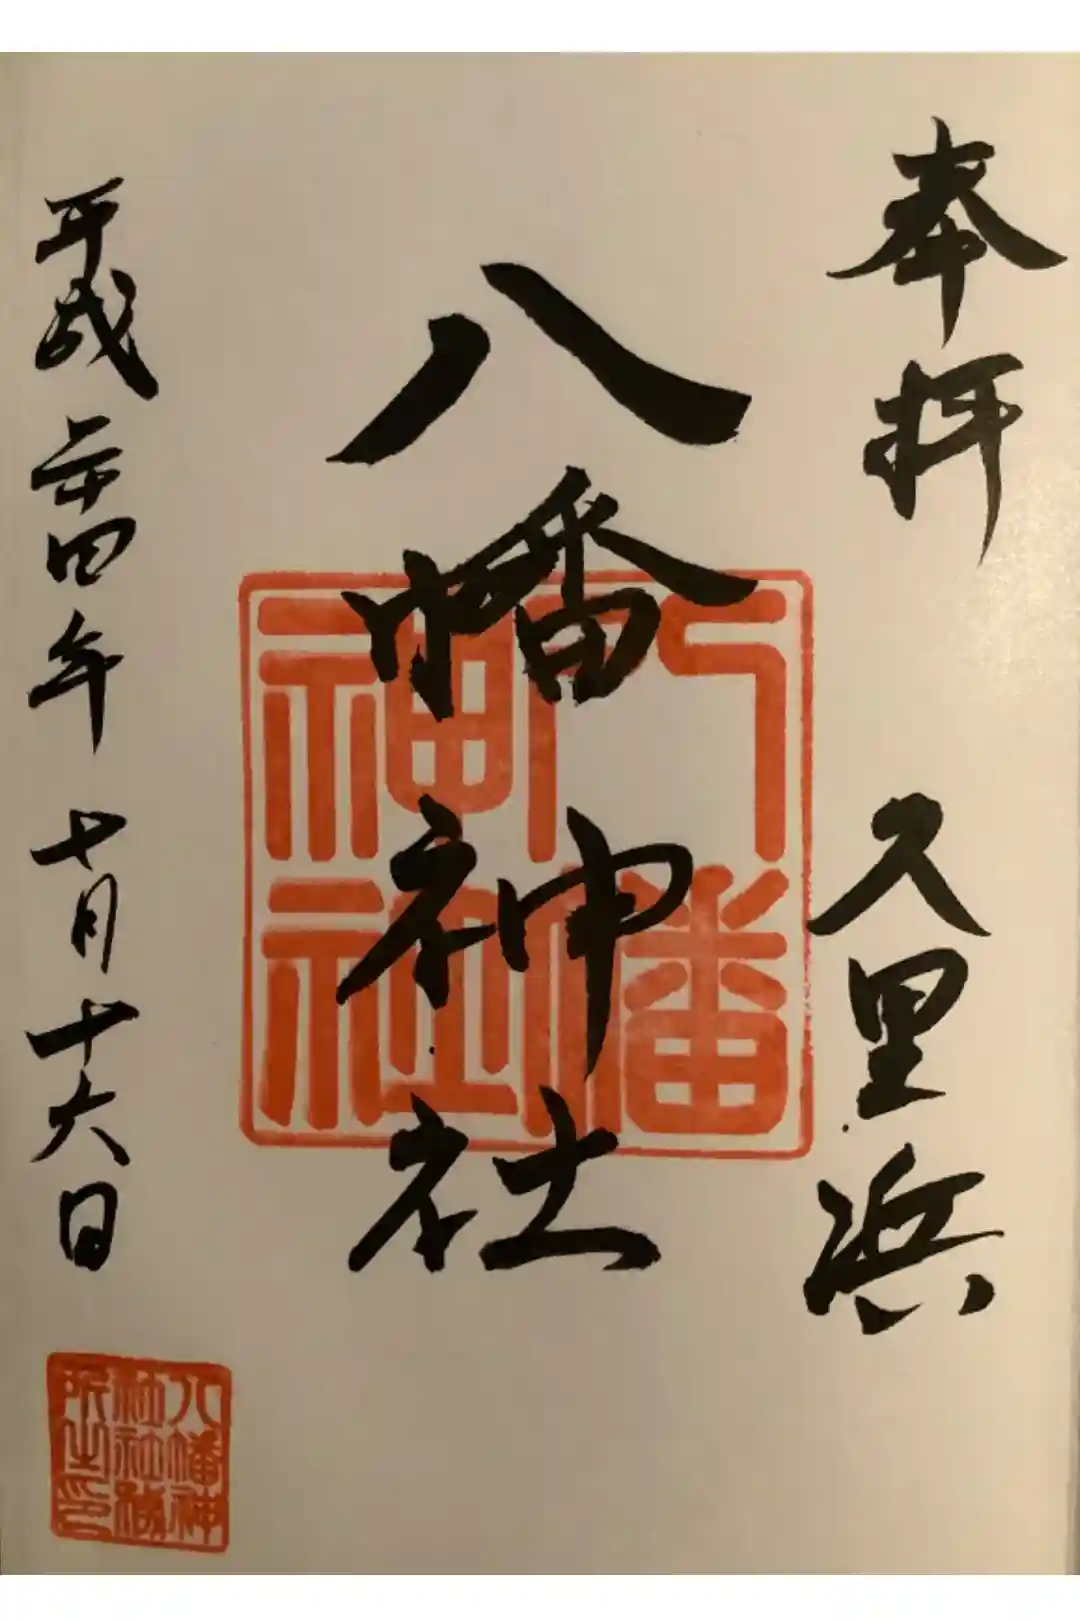 奉拝
久里浜
八幡神社
八幡神社
平成二十四年十月十六日
八幡神
社社務
所之印